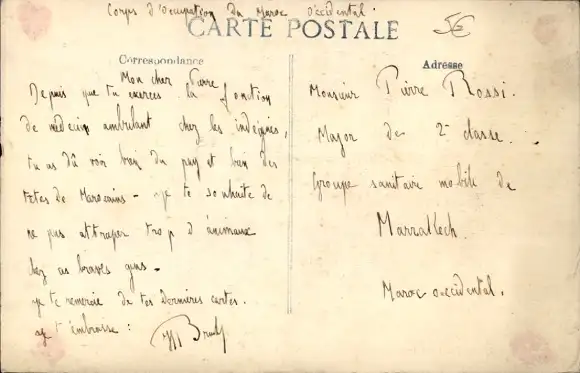 Corps d'Occupation du Maroc Occidental.
CARTE POSTALE
5€
Correspondance
Mon cher Pierre
Depuis que tu exerces la fonction
de medecin ambulant chez les indigènes,
tu as dû voir bien du pays et bien des
têtes de Marocains - je te souhaite de
ne pas attraper trop d'animaux
chez ces braves gens -
je te remercie de tes dernières cartes.
et t'embrasse :
Adresse
Monsieur Pierre Rossi.
Major de 2e classe.
Groupe sanitaire mobile de
Marrakech
Maroc occidental.